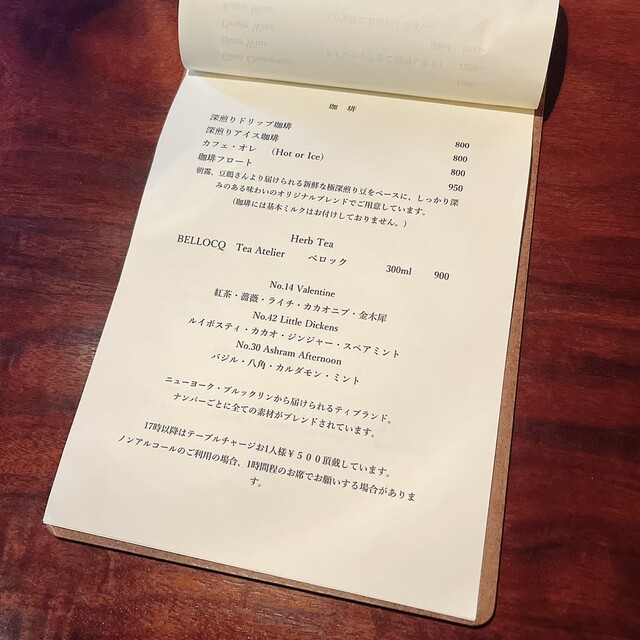 珈 琲
深煎りドリップ珈琲 800
深煎りアイス珈琲 800
カフェ・オレ (Hot or Ice) 800
珈琲フロート 950
朝霧、豆鶴さんより届けられる新鮮な極深煎り豆をベースに、しっかり深
みのある味わいのオリジナルブレンドでご用意しています。
(珈琲には基本ミルクはお付けしておりません。)
Herb Tea
BELLOCQ Tea Atelier ベロック 300ml 900
No.14 Valentine
紅茶・薔薇・ライチ・カカオニブ・金木犀
No.42 Little Dickens
ルイボスティ・カカオ・ジンジャー・スペアミント
No.30 Ashram Afternoon
バジル・八角・カルダモン・ミント
ニューヨーク・ブルックリンから届けられるティブランド。
ナンバーごとに全ての素材がブレンドされています。
17時以降はテーブルチャージお1人様￥５００頂戴しています。
ノンアルコールのご利用の場合、1時間程のお席でお願いする場合がありま
す。